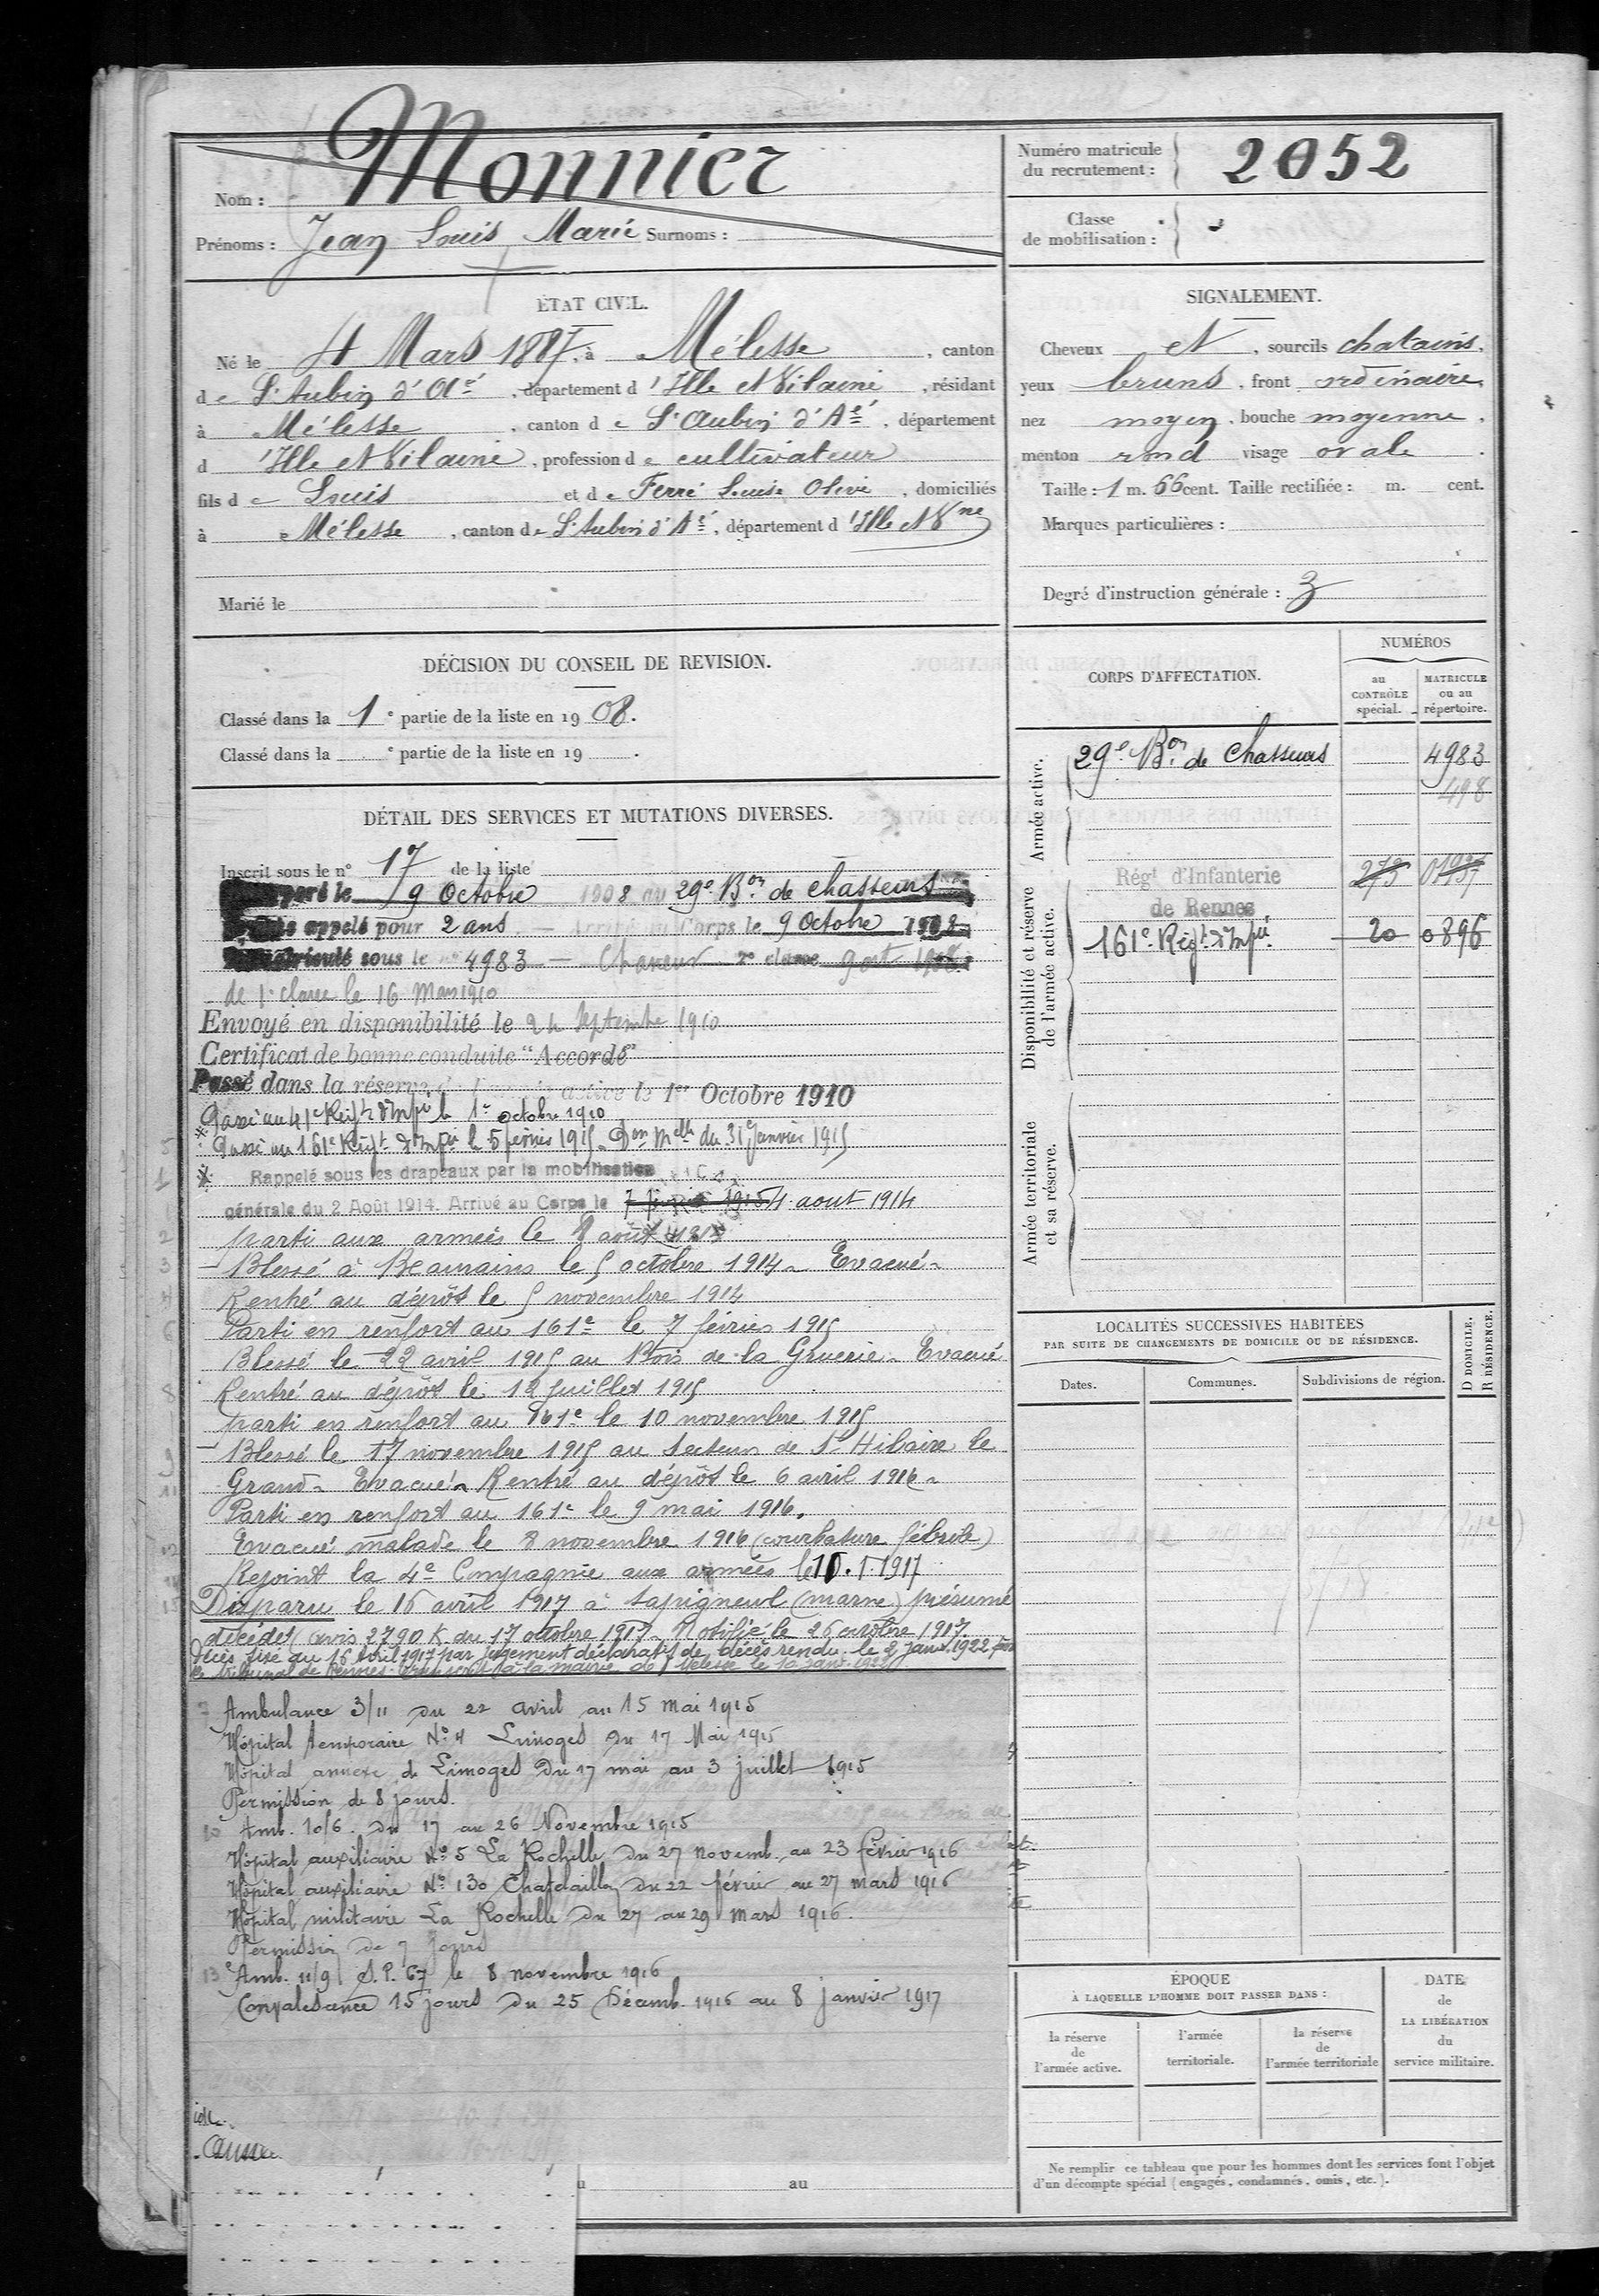 Nom : Monnier
Prénoms : Jean Louis Marie Surnoms :
Numéro matricule du recrutement : 2052
Classe de mobilisation :
ÉTAT CIVIL.
Né le 4 Mars 1887, à Mélesse, canton
de St Aubin d'Aé, département d'Ille et Vilaine, résidant
à Mélesse, canton de St Aubin d'Aé, département
d'Ille et Vilaine, profession de cultivateur
fils de Louis et de Ferré Louise Olive, domiciliés
à Mélesse, canton de St Aubin d'Aé, département d'Ille et Vne
Marié le
SIGNALEMENT.
Cheveux et, sourcils chatains,
yeux bruns, front ordinaire,
nez moyen, bouche moyenne,
menton rond visage ovale.
Taille : 1 m. 66 cent. Taille rectifiée : m. cent.
Marques particulières :
Degré d'instruction générale : 3
DÉCISION DU CONSEIL DE REVISION.
Classé dans la 1e partie de la liste en 1908.
Classé dans la e partie de la liste en 19 .
DÉTAIL DES SERVICES ET MUTATIONS DIVERSES.
Inscrit sous le n° 17 de la liste
le 9 Octobre 1908 au 29e Bon de chasseurs
appelé pour 2 ans — Arrivé au Corps le 9 Octobre 1908
sous le n° 4983 — Chasseur 2e classe 9 oct 1908
de 1e classe le 16 Mars 1910
Envoyé en disponibilité le 24 Septembre 1910
Certificat de bonne conduite "Accordé"
Passé dans la réserve de l'armée active le 1er Octobre 1910
Passé au 41e Régt d'Infie le 1er octobre 1910
Passé au 161e Régt d'Infie le 5 février 1915. Don Mlle du 31 Janvier 1915
Rappelé sous les drapeaux par la mobilisation
générale du 2 Août 1914. Arrivé au Corps le 4 aout 1914
parti aux armées le 8 août
Blessé à Beaurains le 5 octobre 1914 - Evacué -
Rentré au dépôt le 5 novembre 1914
Parti en renfort au 161e le 7 février 1915
Blessé le 22 avril 1915 au Bois de la Gruerie - Evacué
Rentré au dépôt le 12 juillet 1915
parti en renfort au 161e le 10 novembre 1915
Blessé le 17 novembre 1915 au secteur de St Hilaire le
Grand - Evacué - Rentré au dépôt le 6 avril 1916 -
Parti en renfort au 161e le 9 mai 1916.
Evacué malade le 8 novembre 1916 (courbature fébrile)
Rejoint la 4e Compagnie aux armées le 10.1.1917
Disparu le 16 avril 1917 à Sapigneul (marne) présumé
décédé (avis 2790 K. du 17 octobre 1917. Notifié le 26 octobre 1917.
Décès fixé au 16 Avril 1917 par jugement déclaratif de décès rendu le 2 janv. 1922 par
le tribunal de Rennes. Transcrit à la mairie de Mélesse le 10 janv. 1922
Ambulance 3/11 du 22 avril au 15 mai 1915
Hôpital temporaire N° 4 Limoges du 17 Mai 1915
Hôpital annexe de Limoges du 17 mai au 3 juillet 1915
Permission de 8 jours.
Amb. 10/6. du 17 au 26 Novembre 1915
Hôpital auxiliaire N° 5 La Rochelle du 27 novemb. au 23 février 1916
Hôpital auxiliaire N° 130 Chatelaillon du 22 février au 27 mars 1916
Hôpital militaire La Rochelle du 27 au 29 Mars 1916.
Permission de 7 jours
Amb. 11/9 S.P. 67 le 8 novembre 1916
Convalescence 15 jours du 25 Décemb. 1916 au 8 janvier 1917
au
CORPS D'AFFECTATION.
NUMÉROS
au CONTRÔLE spécial.
MATRICULE ou au répertoire.
Armée active.
29e Bon de Chasseurs 4983
498
Disponibilité et réserve de l'armée active.
Régt d'Infanterie de Rennes 273 01937
161e Régt d'Infie 20 0896
Armée territoriale et sa réserve.
LOCALITÉS SUCCESSIVES HABITÉES
PAR SUITE DE CHANGEMENTS DE DOMICILE OU DE RÉSIDENCE.
D DOMICILE. R RÉSIDENCE.
Dates. Communes. Subdivisions de région.
ÉPOQUE
À LAQUELLE L'HOMME DOIT PASSER DANS :
la réserve de l'armée active.
l'armée territoriale.
la réserve de l'armée territoriale
DATE de LA LIBÉRATION du service militaire.
Ne remplir ce tableau que pour les hommes dont les services font l'objet
d'un décompte spécial (engagés, condamnés, omis, etc.).